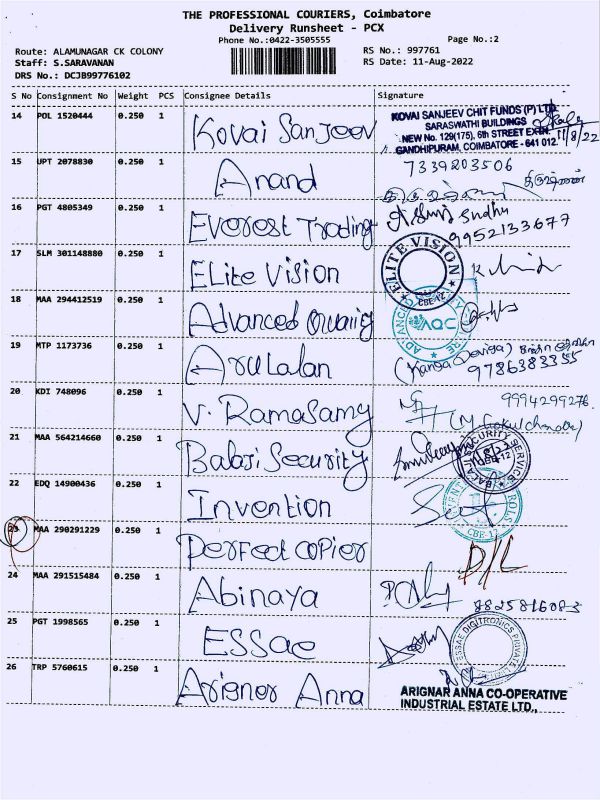 THE PROFESSIONAL COURIERS, Coimbatore
Delivery Runsheet - PCX
Phone No.:0422-3505555 Page No.:2
Route: ALAMUNAGAR CK COLONY RS No.: 997761
Staff: S.SARAVANAN RS Date: 11-Aug-2022
DRS No.: DCJB99776102
S No Consignment No Weight PCS Consignee Details Signature
14 POL 1520444 0.250 1 Kovai Sanjeev KOVAI SANJEEV CHIT FUNDS (P) LTD.
SARASWATHI BUILDINGS
NEW No. 129(175), 6th STREET EXTN.
GANDHIPURAM, COIMBATORE - 641 012. 11/8/22
15 UPT 2078830 0.250 1 Anand 7339203506
16 PGT 4805349 0.250 1 Everest Trading Sndhu
9952133677
17 SLM 301148880 0.250 1 ELite Vision ELITE VISION CBE-12
18 MAA 294412519 0.250 1 Advanced Quality AQC
19 MTP 1173736 0.250 1 Arulalan
9786383355
20 KDI 748096 0.250 1 V. Ramasamy 9994299276
21 MAA 564214660 0.250 1 Balaji Security SECURITY SERVICE CBE-12
22 EDQ 14900436 0.250 1 Invention CBE-12
23 MAA 290291229 0.250 1 Perfect Copier D/L
24 MAA 291515484 0.250 1 Abinaya 8825816083
25 PGT 1998565 0.250 1 ESSae ESSAE DIGITRONICS PRIVATE LIMITED
26 TRP 5760615 0.250 1 Arigner Anna ARIGNAR ANNA CO-OPERATIVE
INDUSTRIAL ESTATE LTD.,